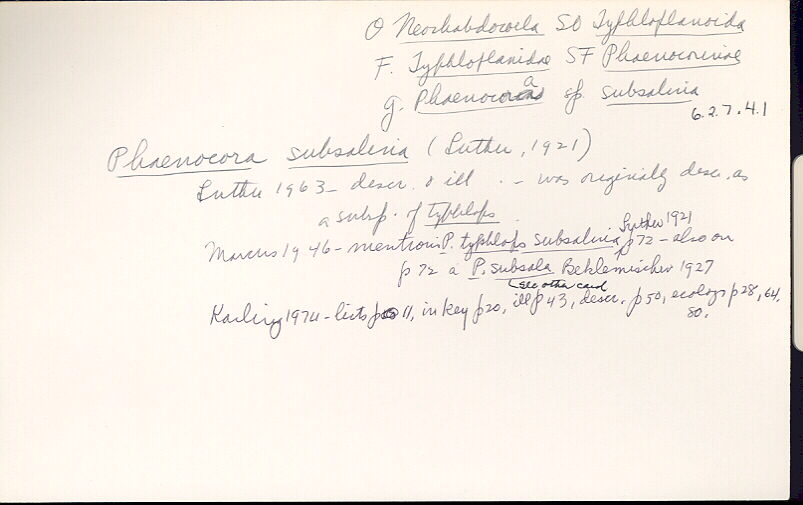 O Neorhabdocoela SO Typhloplanoida
F. Typhloplanidae SF Phaenocorinae
g. Phaenocora sp. subsalina
6.2.7.4.1
Phaenocora subsalina (Luther, 1921)
Luther 1963 - descr. & ill - was originally desc. as
a subsp. of typhlops
Marcus 1946 - mentions P. typhlops subsalina Luther 1921 p72 - also on
p72 a P. subsala Beklemischev 1927
see other card
Karling 1974 - lists p 11, in key p20, ill p43, descr. p50, ecology p28, 64,
80.